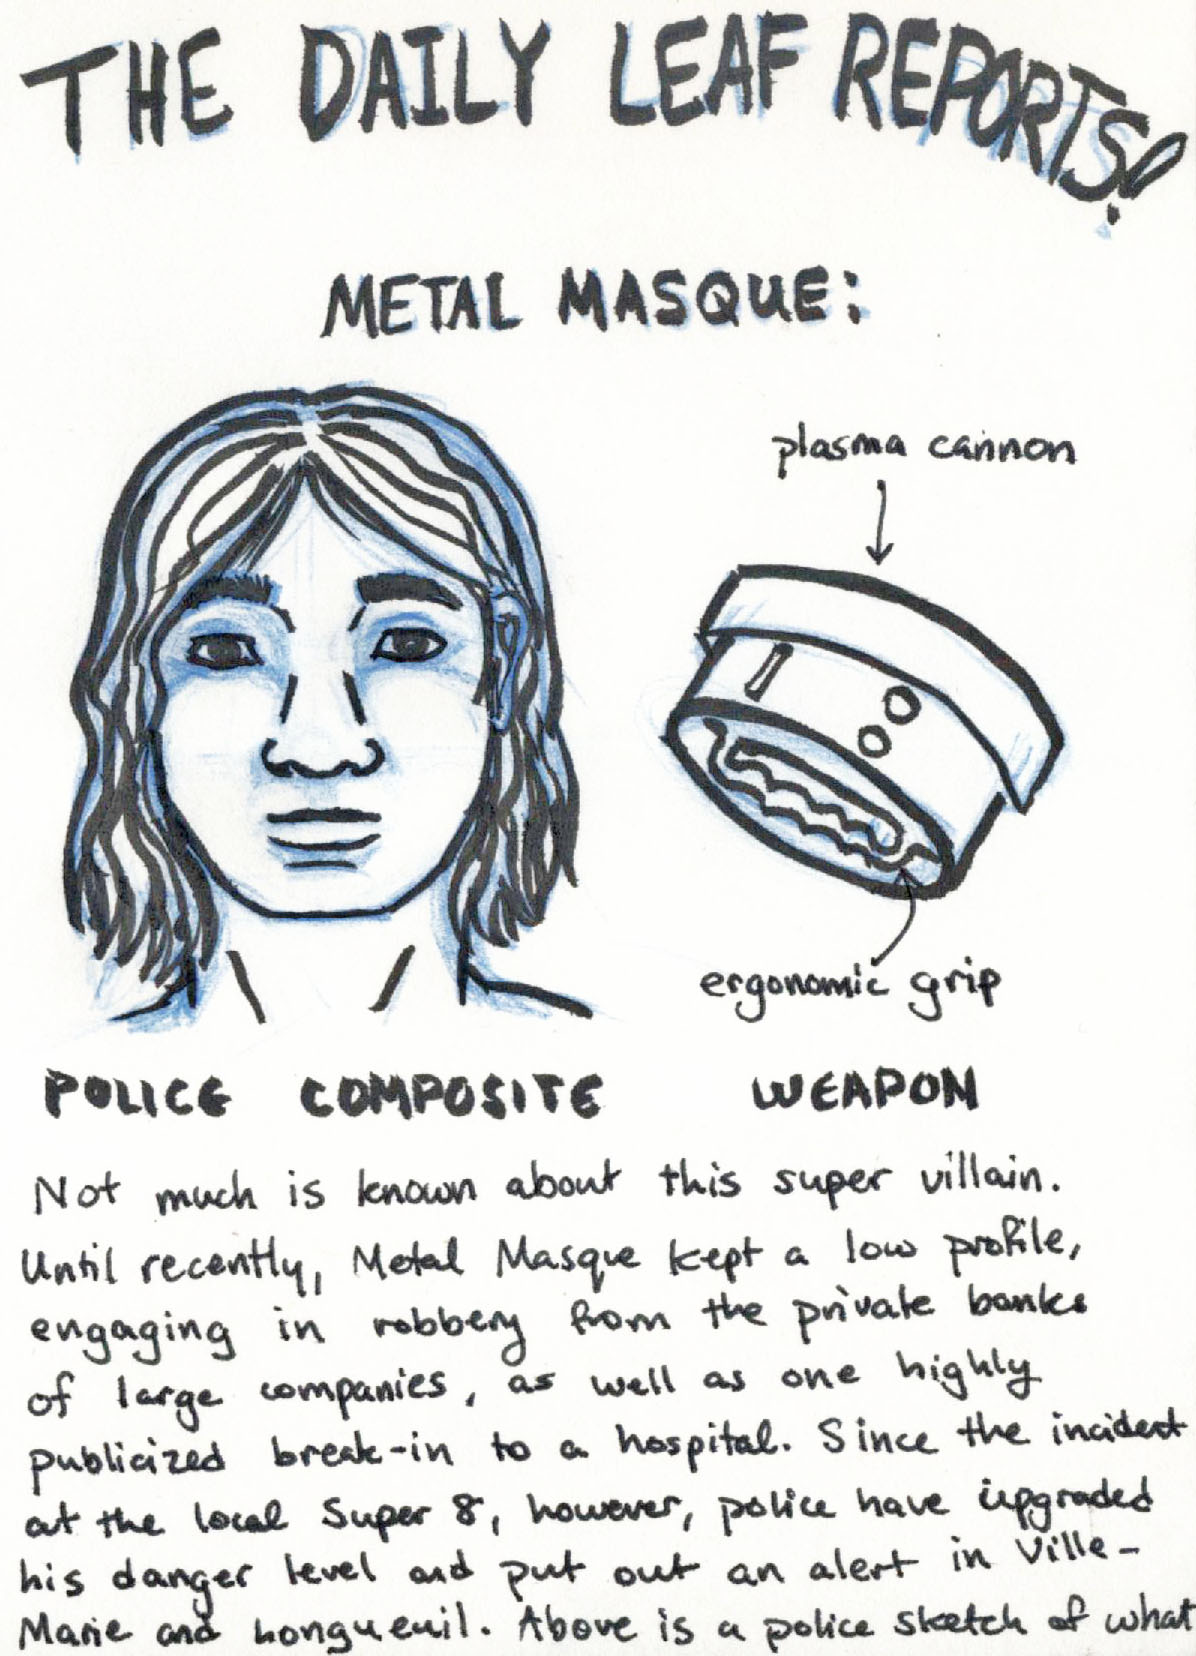 THE DAILY LEAF REPORTS!
METAL MASQUE:
plasma cannon
ergonomic grip
POLICE COMPOSITE
WEAPON
Not much is known about this super villain.
Until recently, Metal Masque kept a low profile,
engaging in robbery from the private banks
of large companies, as well as one highly
publicized break-in to a hospital. Since the incident
at the local Super 8, however, police have upgraded
his danger level and put out an alert in Ville-
Marie and Longueuil. Above is a police sketch of what